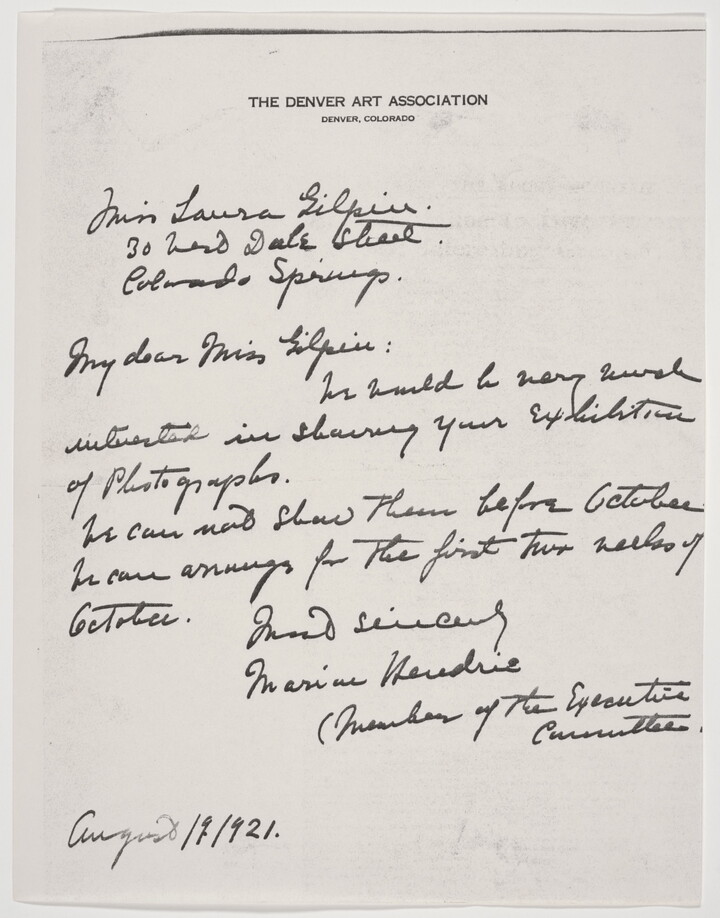 THE DENVER ART ASSOCIATION
DENVER, COLORADO
Miss Laura Gilpin.
30 West Dale Street.
Colorado Springs.
My dear Miss Gilpin:
We would be very much
interested in showing your Exhibition
of Photographs.
We can not show them before October
We can arrange for the first two weeks of
October.
Most sincerely
Marion Hendrie
(Member of the Executive
Committee.
August 19/1921.